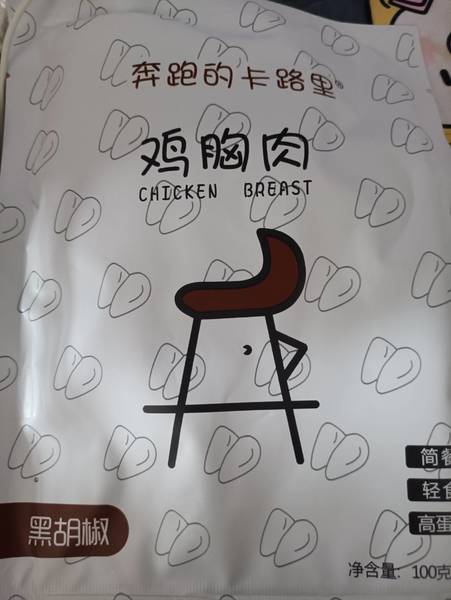 奔跑的卡路里®
鸡胸肉
CHICKEN BREAST
简餐
轻食
高蛋
黑胡椒
净含量: 100克